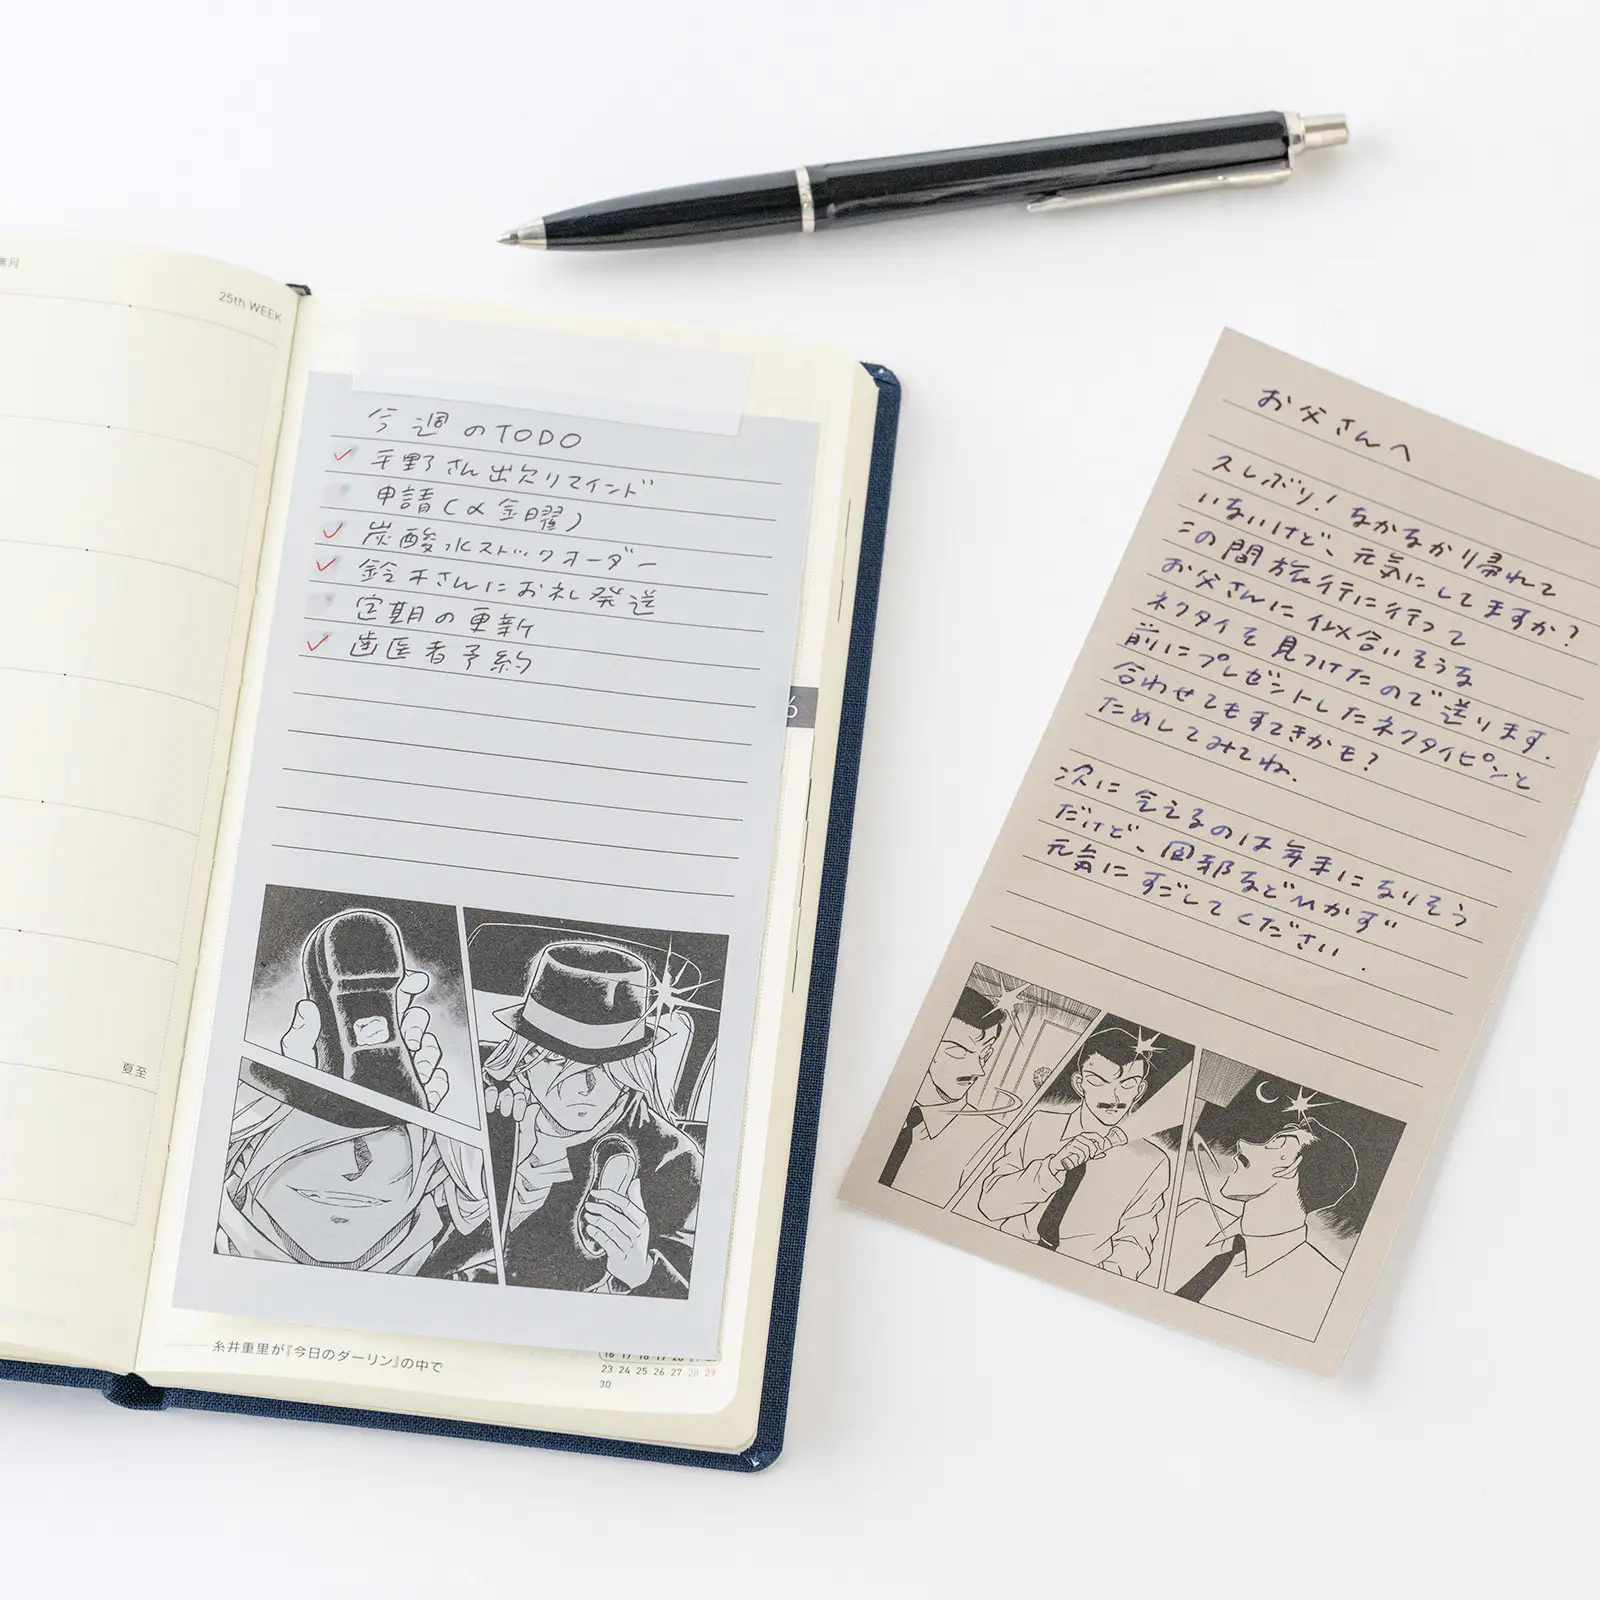 無月
25th WEEK
夏至
今週のTODO
平野さん出欠リマインド
申請(〆金曜)
炭酸水ストックオーダー
鈴木さんにお礼発送
定期の更新
歯医者予約
6
糸井重里が『今日のダーリン』の中で
23 24 25 26 27 28 29
30
お父さんへ
久しぶり!なかなかり帰れて
いないけど、元気にしてますか?
この間旅行に行って
お父さんに似合いそうな
ネクタイを見つけたので送ります.
前にプレゼントしたネクタイピンと
合わせてもすてきかも?
ためしてみてね.
次に会えるのは年末になりそう
だけど、風邪などひかず
元気にすごしてください.